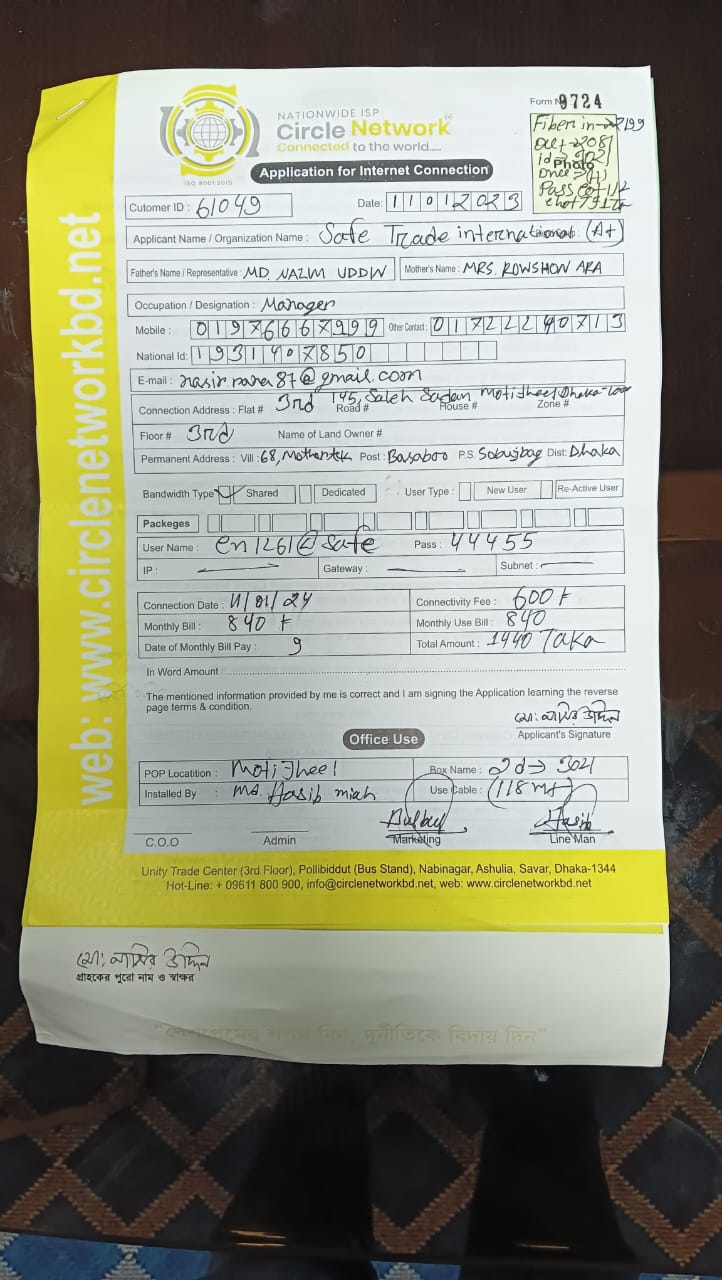 NATIONWIDE ISP
Circle Network
Connected to the world....
ISO 9001:2015
Form N 9724
Fiber in
Photo
Application for Internet Connection
Cutomer ID : 61049
Date: 11012023
Applicant Name / Organization Name : Safe Trade international (A+)
Father's Name / Representative : MD. NAZIM UDDIN
Mother's Name : MRS. ROWSHON ARA
Occupation / Designation : Manager
Mobile : 01976667999 Other Contact : 01722240713
National Id: 1931407850
E-mail : nasir.rana87@gmail.com
145, Saleh Sadan Motijheel Dhaka
Connection Address : Flat # 3rd Road # House # Zone #
Floor # 3rd Name of Land Owner #
Permanent Address : Vill : 68, Post : Basaboo P.S. Sobujbag Dist: Dhaka
Bandwidth Type Shared Dedicated User Type : New User Re-Active User
Packeges
User Name : en1261@safe Pass : 44455
IP : Gateway : Subnet :
Connection Date : 11/01/24 Connectivity Fee : 600 t
Monthly Bill : 840 t Monthly Use Bill : 840
Date of Monthly Bill Pay : 9 Total Amount : 1440 Taka
In Word Amount :
The mentioned information provided by me is correct and I am signing the Application learning the reverse
page terms & condition.
মো: নাসির উদ্দিন
Applicant's Signature
Office Use
POP Locatition : Motijheel Box Name : 2d→
Installed By : Md. Hasib miah Use Cable : (118 mt)
Hasib
C.O.O Admin Marketing Line Man
Unity Trade Center (3rd Floor), Pollibiddut (Bus Stand), Nabinagar, Ashulia, Savar, Dhaka-1344
Hot-Line: + 09611 800 900, info@circlenetworkbd.net, web: www.circlenetworkbd.net
web: www.circlenetworkbd.net
মো: নাসির উদ্দিন
গ্রাহকের পুরো নাম ও স্বাক্ষর
নিন, দুর্নীতিকে বিদায় দিন"